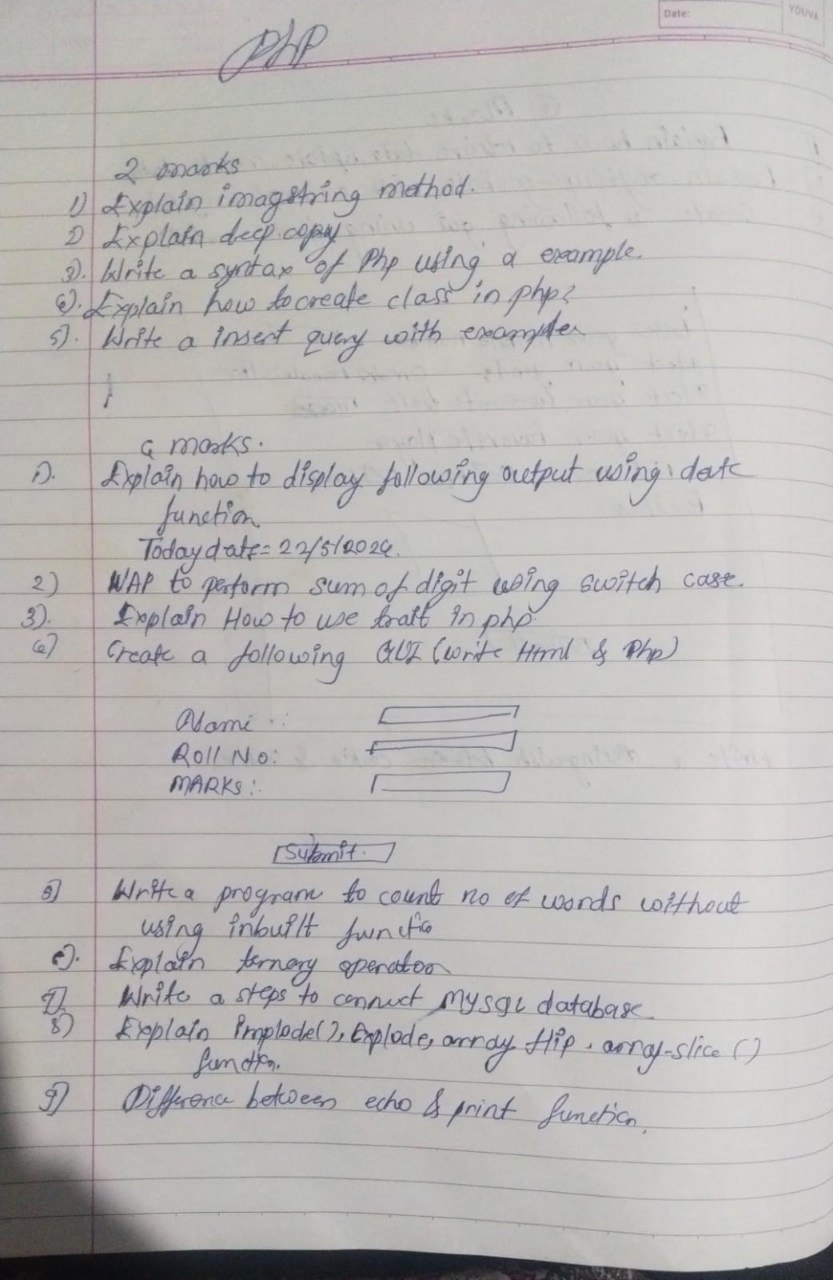 Date:
YOUVA
PHP
2 marks
1) Explain imagstring method.
2) Explain deep copy
3). Write a syntax of Php using a example.
4). Explain how to create class in php?
5). Write a insert query with example
4 marks.
1). Explain how to display following output using date
function
Today date = 22/5/2024.
2) WAP to perform sum of digit using switch case.
3). Explain How to use trait in php
4) Create a following GUI (write Html & Php)
Name :
Roll No:
MARKS:
Submit.
5) Write a program to count no of words without
using inbuilt functio
6). Explain ternary operator
7). Write a steps to connect Mysql database.
8) Explain Implode(), Explode, array flip, array-slice ()
function.
9) Difference between echo & print function.